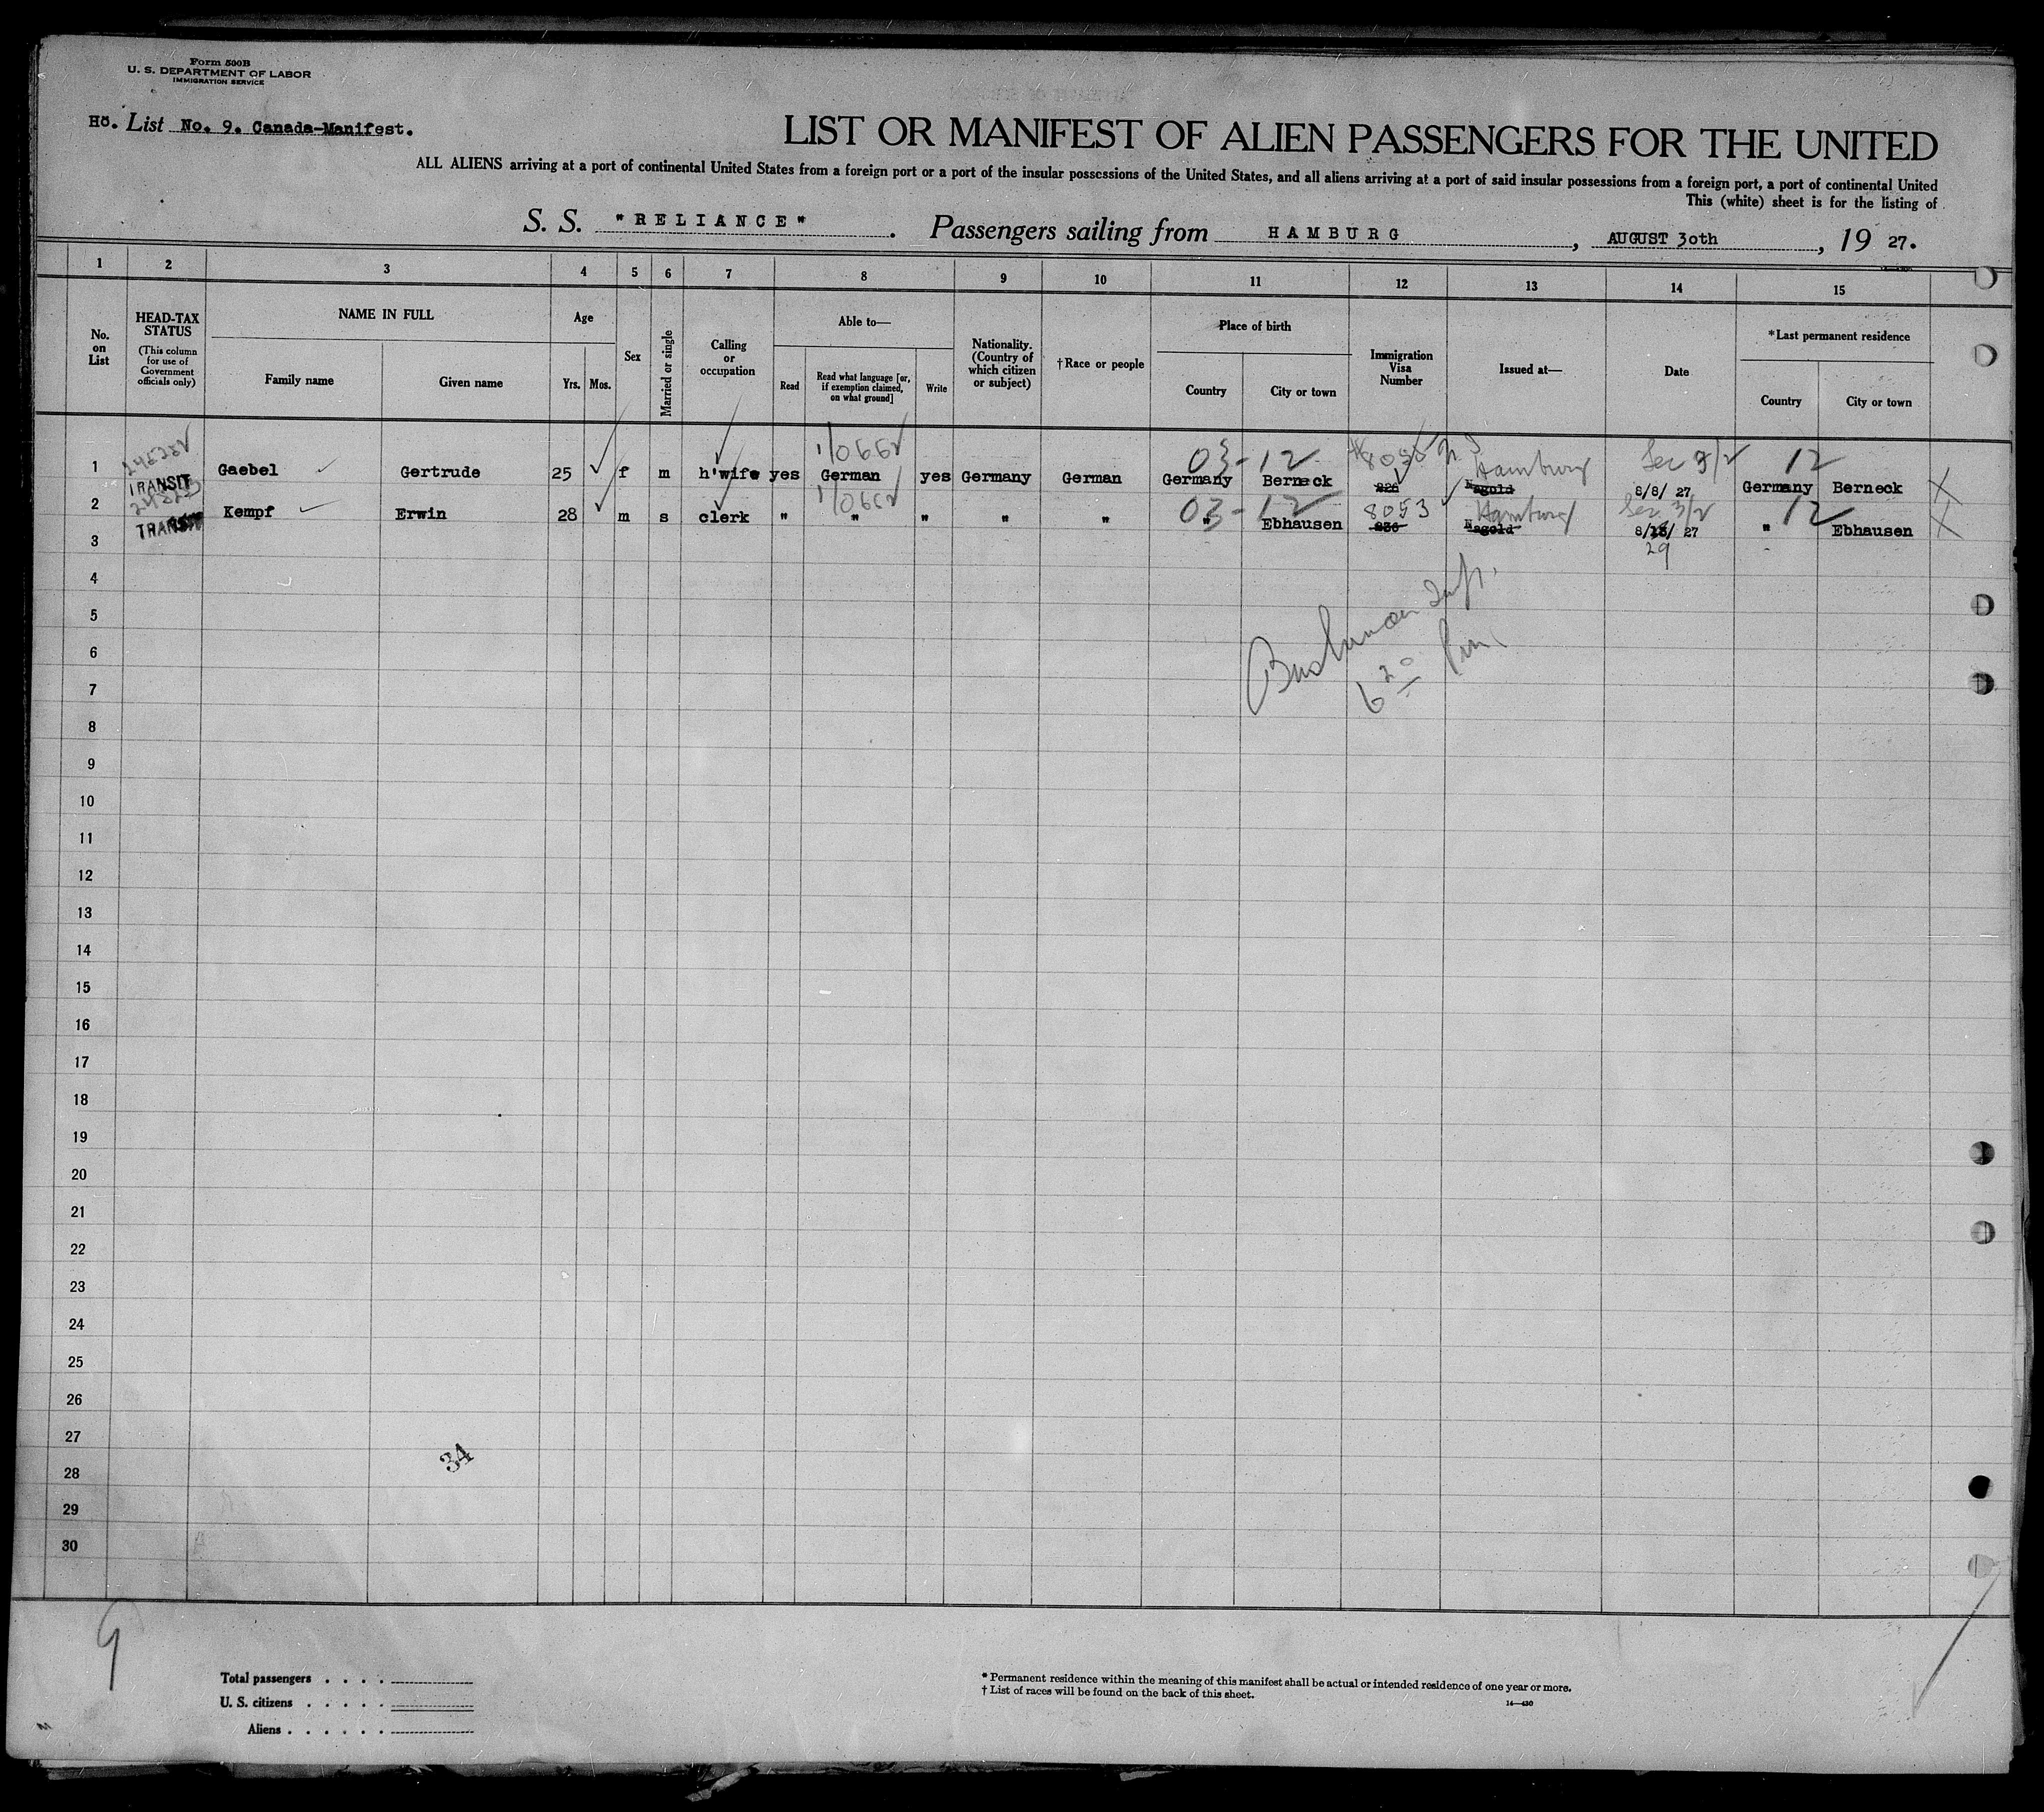 Form 500B
U. S. DEPARTMENT OF LABOR
IMMIGRATION SERVICE
Hö. List No. 9. Canada-Manifest.
LIST OR MANIFEST OF ALIEN PASSENGERS FOR THE UNITED
ALL ALIENS arriving at a port of continental United States from a foreign port or a port of the insular possessions of the United States, and all aliens arriving at a port of said insular possessions from a foreign port, a port of continental United
This (white) sheet is for the listing of
S. S. "RELIANCE". Passengers sailing from HAMBURG, AUGUST 3oth, 19 27.
1 2 3 4 5 6 7 8 9 10 11 12 13 14 15
No. on List
HEAD-TAX STATUS (This column for use of Government officials only)
NAME IN FULL
Family name Given name
Age
Yrs. Mos.
Sex
Married or single
Calling or occupation
Able to—
Read Read what language [or, if exemption claimed, on what ground] Write
Nationality. (Country of which citizen or subject)
†Race or people
Place of birth
Country City or town
Immigration Visa Number
Issued at—
Date
*Last permanent residence
Country City or town
03-12 Hamburg 12
1 TRANSIT Gaebel Gertrude 25 f m h'wife yes German yes Germany German Germany Berneck 226 Nagold 8/8/ 27 Germany Berneck
03-12 8053 Hamburg 12
2 TRANSIT Kempf Erwin 28 m s clerk " " " " " " Ebhausen 236 Nagold 8/18/ 27 " Ebhausen
29
3
4
5
6
7
8
9
10
11
12
13
14
15
16
17
18
19
20
21
22
23
24
25
26
27
34
28
29
30
9
Total passengers . . . .
U. S. citizens . . . . .
Aliens . . . . . .
* Permanent residence within the meaning of this manifest shall be actual or intended residence of one year or more.
† List of races will be found on the back of this sheet.
14—430